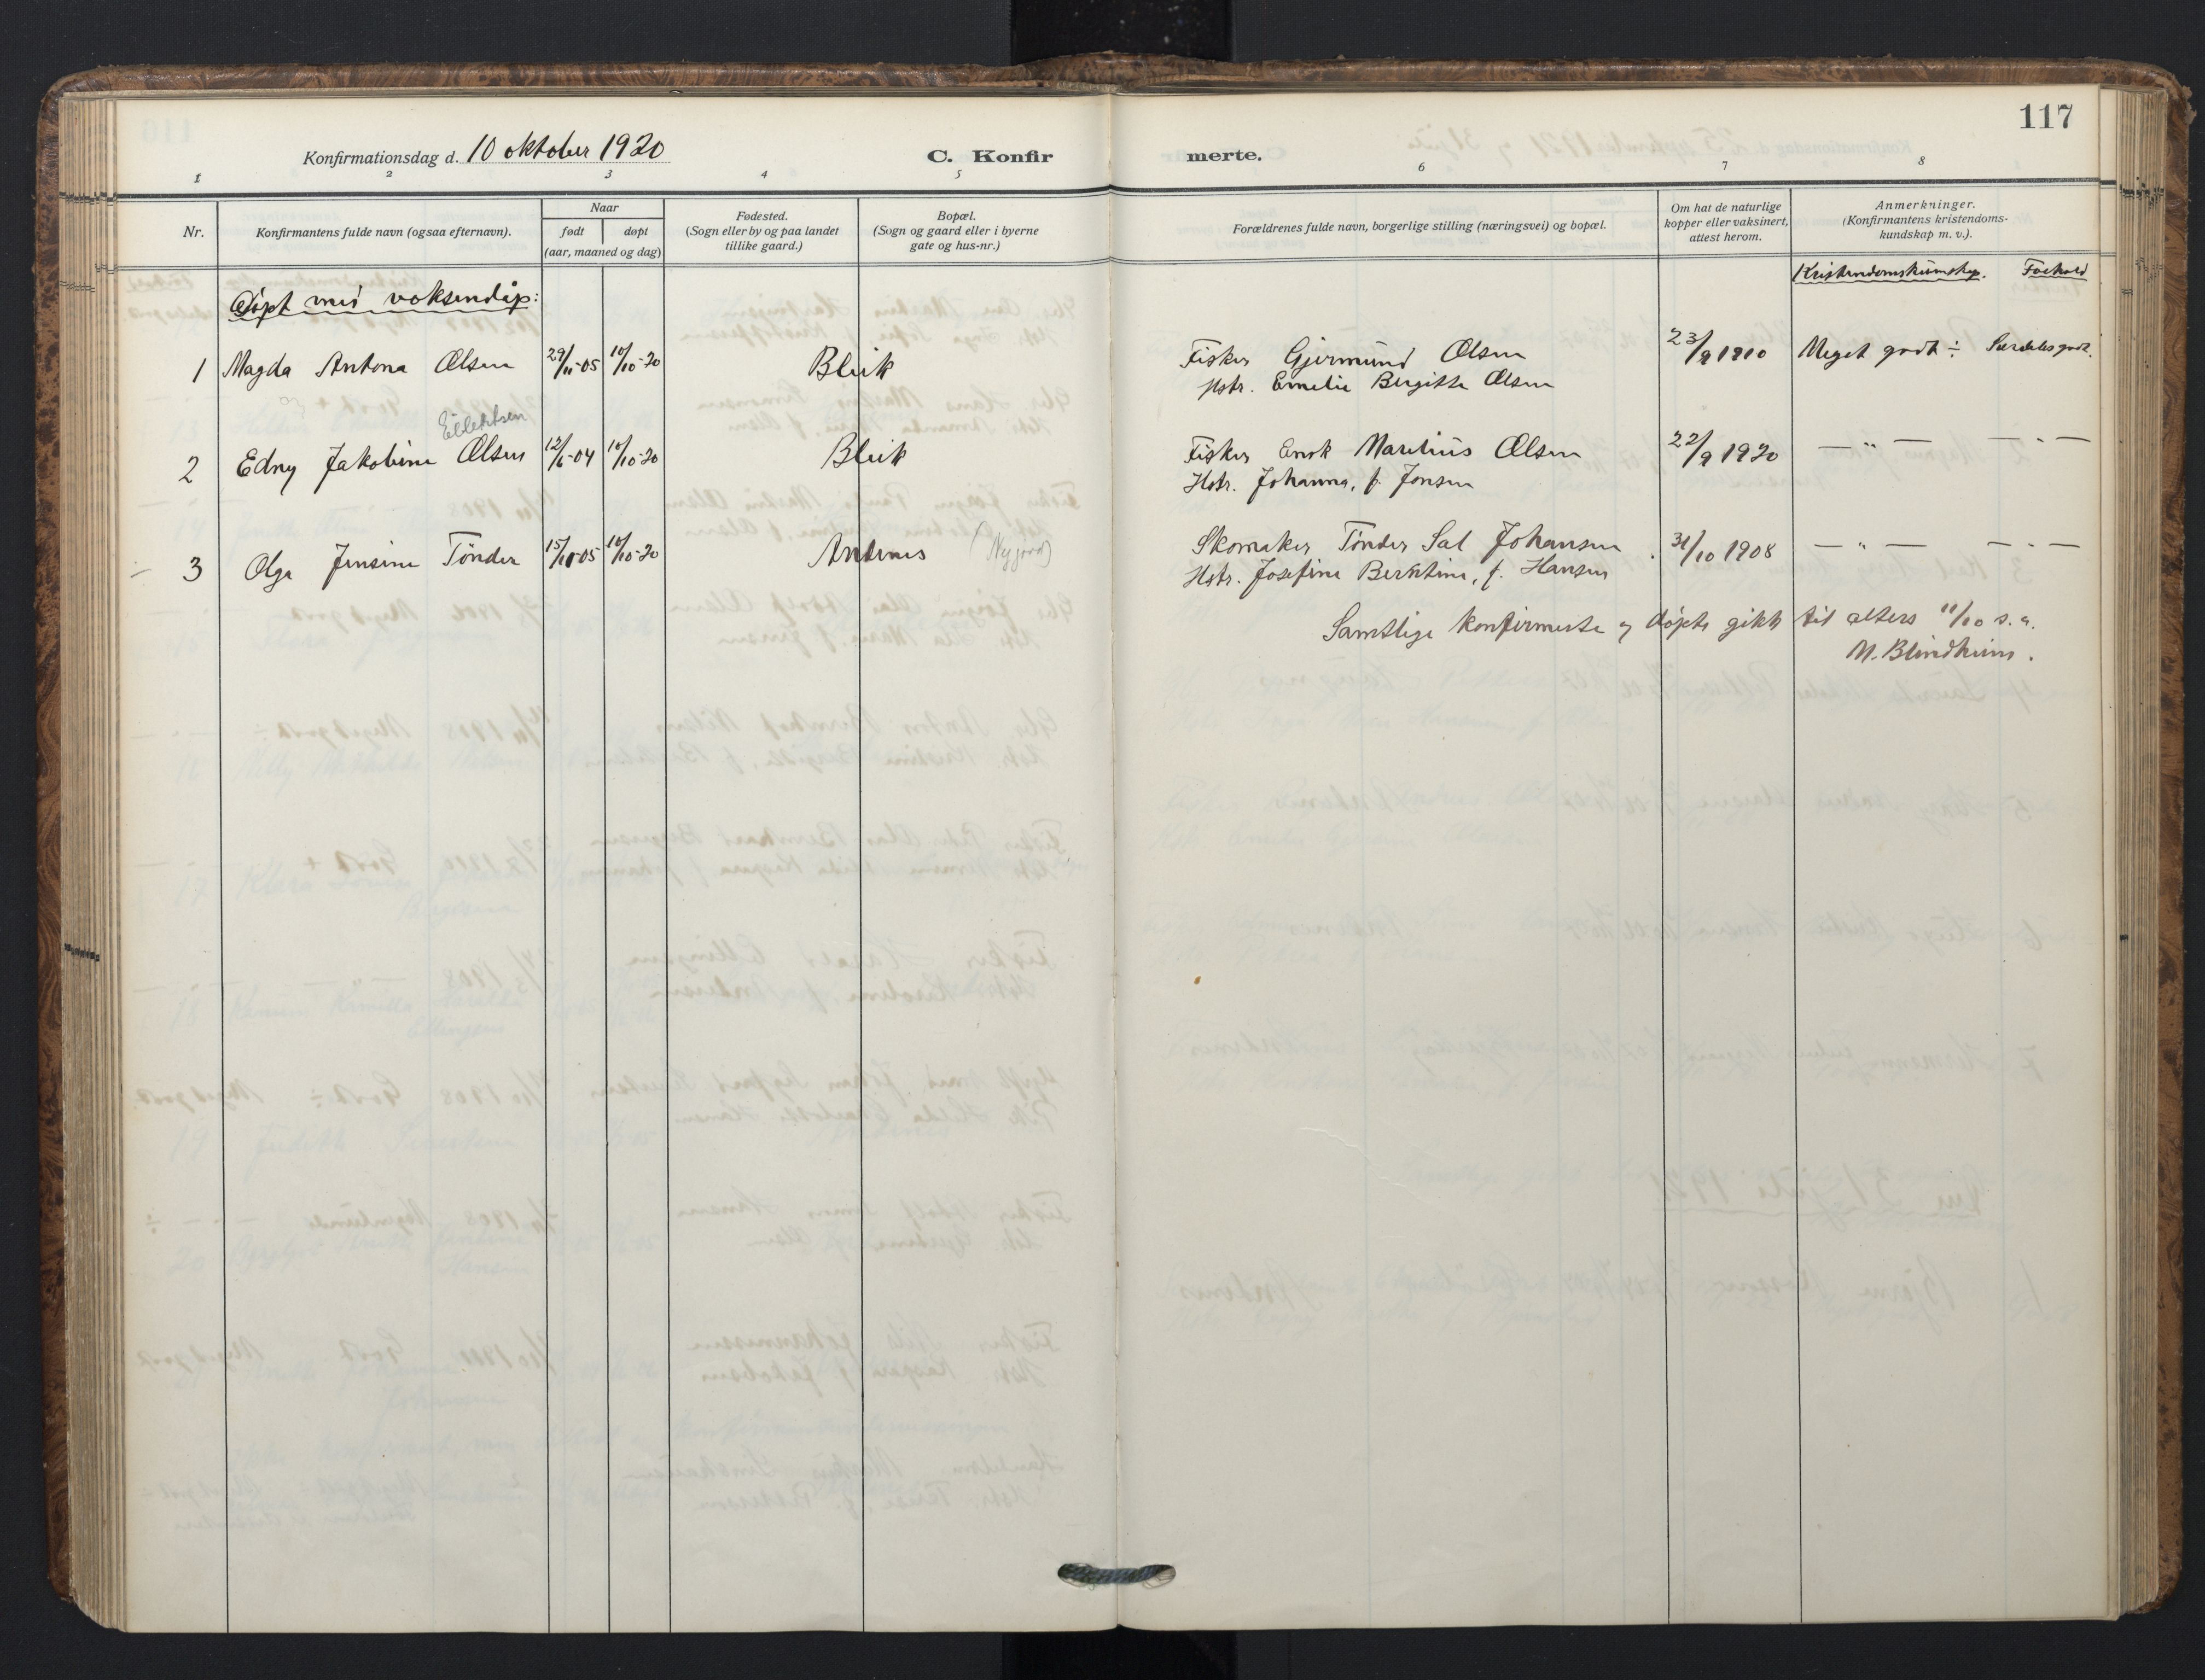 117
Konfirmationsdag d. 10 oktober 1920
C. Konfirmerte.
1 2 3 4 5 6 7 8
Nr.
Konfirmantens fulde navn (ogsaa efternavn).
Naar
født døpt
(aar, maaned og dag)
Fødested.
(Sogn eller by og paa landet
tillike gaard.)
Bopæl.
(Sogn og gaard eller i byerne
gate og hus-nr.)
Forældrenes fulde navn, borgerlige stilling (næringsvei) og bopæl.
Om hat de naturlige
kopper eller vaksinert,
attest herom.
Anmerkninger.
(Konfirmantens kristendoms-
kundskap m. v.).
Kristendomskunnskap. Forhold
Døpt med voksendåp:
1 Magda Antona Olsen 29/11-05 10/10-20 Bleik Fisker Gjermund Olsen 23/9 1910 Meget godt ÷ Særdeles godt.
Hstr. Emelie Bergitte Olsen
Ellertsen
2 Edny Jakobine Olsen 12/6-04 10/10-20 Bleik Fisker Enok Marelius Olsen 22/9 1920 — " — — " —
Hstr. Johanna, f. Jonsen
3 Olga Jensine Tönder 15/10-05 10/10-20 Andenes (Nygård) Skomaker Tönder Sal Johansen 31/10 1908 — " — — " —
Hstr. Josefine Berntine, f. Hansen
Samtlige konfirmerte og døpte gikk til alters 11/10 s. a.
M. Blindheim.